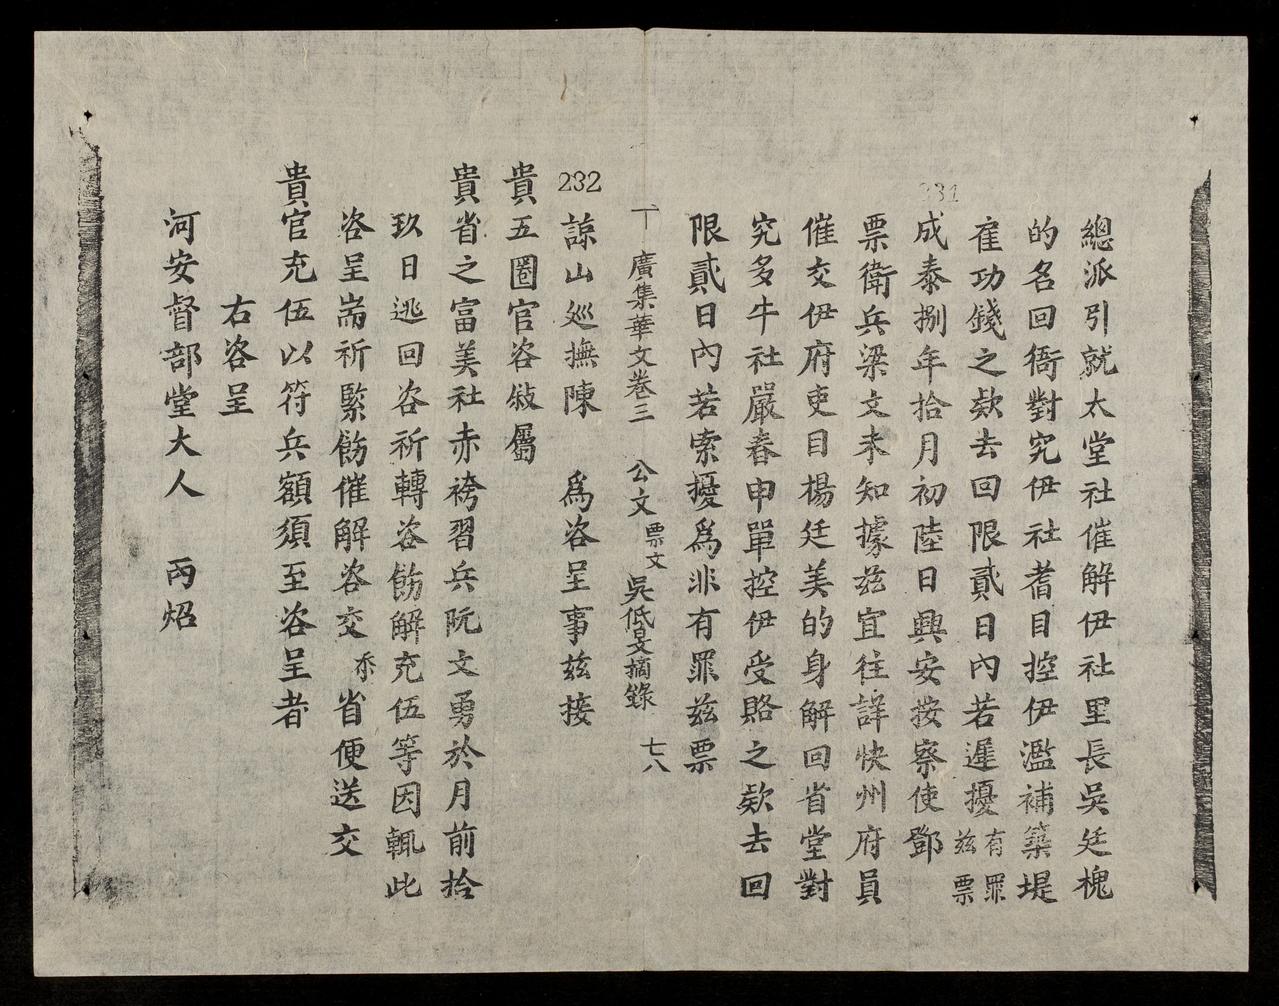 總派引就太堂社催解伊社里長吳廷槐
的名回衙對究伊社耆目控伊濫補築堤
雇功錢之欵去回限貳日內若遲擾有罪茲票
231
成泰捌年拾月初陸日興安按察使鄧
票衛兵梁文未知據茲宜往詳快州府員
催交伊府吏目楊廷美的身解回省堂對
究多牛社嚴春申單控伊受賂之欵去回
限貳日內若索擾爲非有罪茲票
廣集華文卷三 公文 票文 吳低旻摘錄 七八
232
諒山巡撫陳 爲咨呈事茲接
貴五圈官咨敍屬
貴省之富美社赤袴習兵阮文勇於月前拾
玖日逃回咨祈轉咨飭解充伍等因輒此
咨呈耑祈緊飭催解咨交忝省便送交
貴官充伍以符兵額須至咨呈者
右咨呈
河安督部堂大人 丙炤